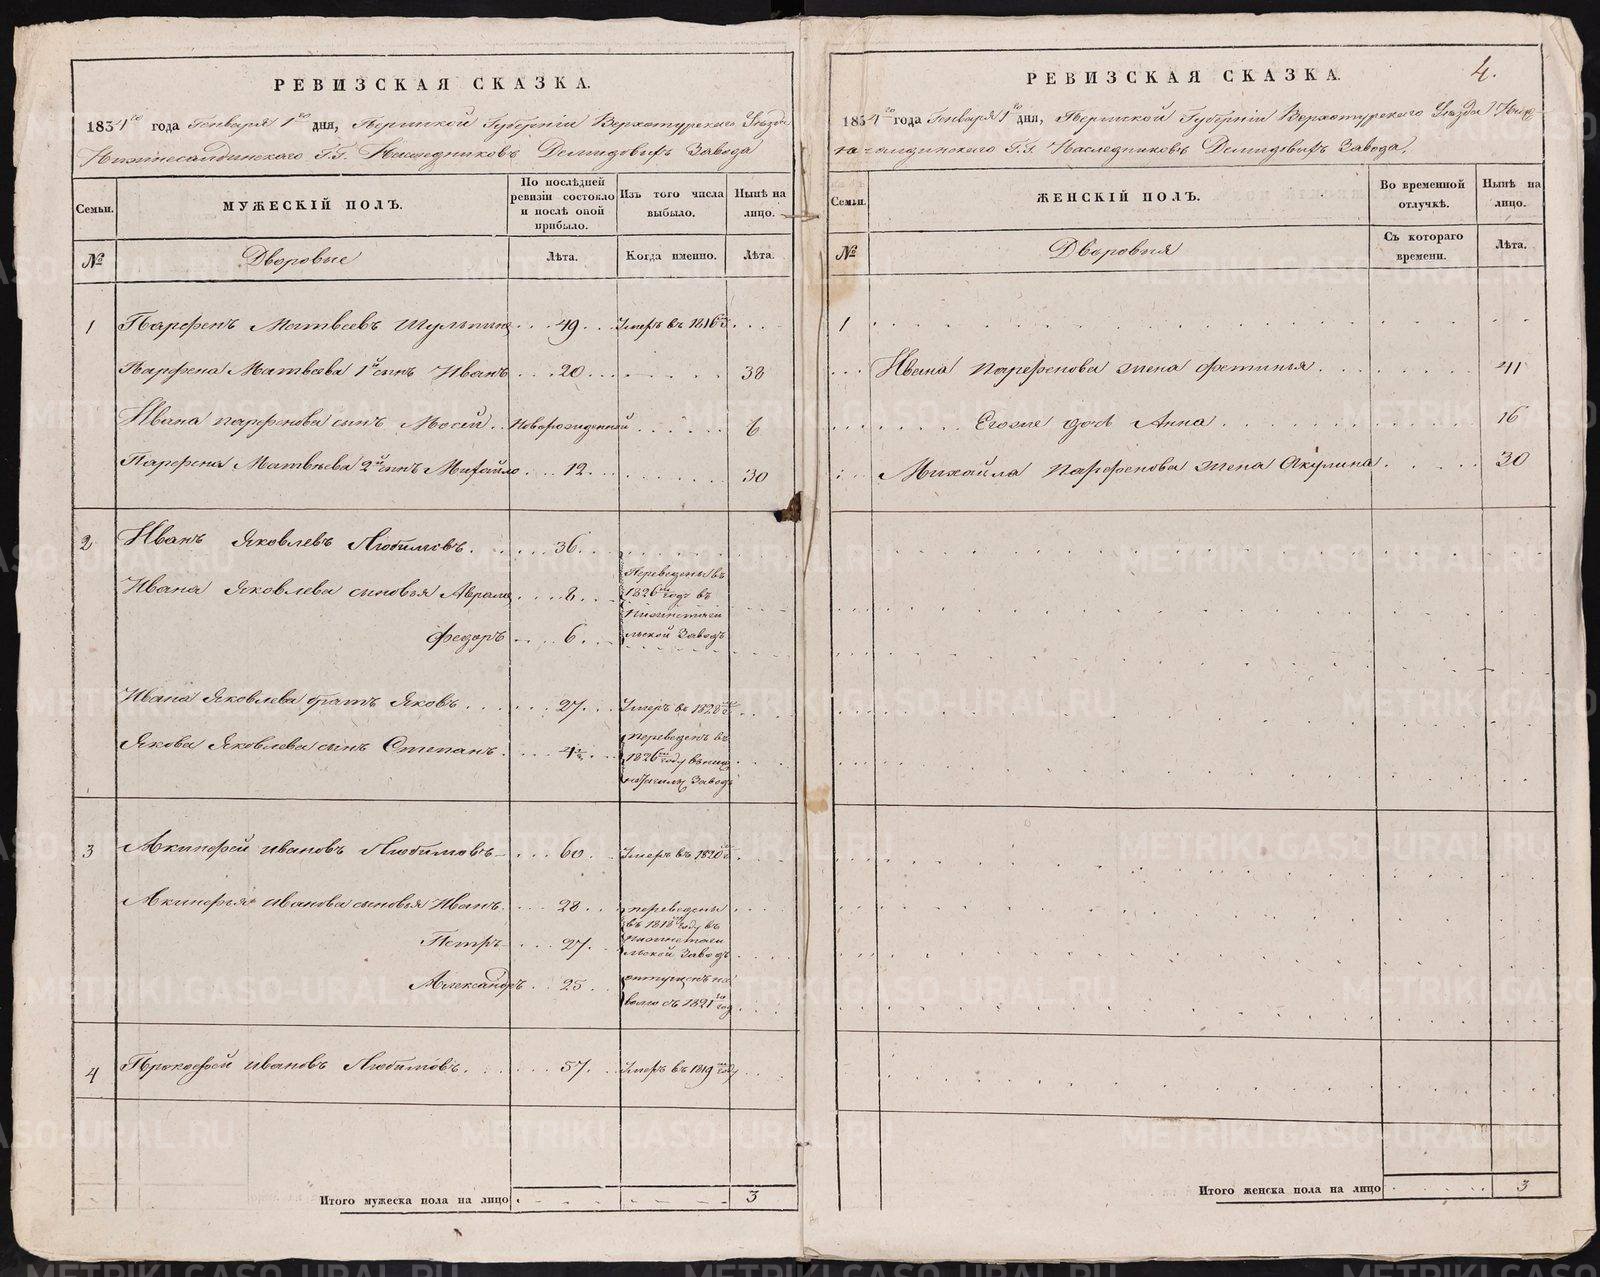 РЕВИЗСКАЯ СКАЗКА.
1834го года Генваря 1го дня, Пермской Губерніи Верхотурскаго Уѣзда
Нижнесалдинскаго Г.Г. Наследниковъ Демидовыхъ Завода
Семьи.
МУЖЕСКІЙ ПОЛЪ.
По послѣдней ревизіи состояло и послѣ оной прибыло.
Изъ того числа выбыло.
Нынѣ на лицо.
№
Дворовые
Лѣта.
Когда именно.
Лѣта.
1 Парфенъ Матвеевъ 49 Умеръ въ 1816
Парфена Матвѣева 1й сынъ Иванъ 20 38
Ивана парфенова сынъ Мосей новорожденной 6
Парфена Матвѣева 2й сынъ Михайло 12 30
2 Иванъ Яковлевъ Любимовъ 36
Ивана Яковлева сыновья Аврамъ 8 Переведены въ 1826м годѣ въ Нижнетагильской Заводъ
Федоръ 6
Ивана Яковлева братъ Яковъ 27 Умеръ въ 1828
Якова Яковлева сынъ Степанъ переведенъ въ 1826м году Заводъ
3 Акинфей Ивановъ Любимовъ 60 Умеръ въ 1820
Акинфья Иванова сыновья Иванъ 28 переведены въ 1818м году въ Нижнетагильской Заводъ
Петръ 27
Александръ 25 отпущенъ на волю съ 1821го год
4 Прокофей Ивановъ Любимовъ 57 Умеръ въ 1819м году
Итого мужеска пола на лицо 3
РЕВИЗСКАЯ СКАЗКА.
4.
1834го года Генваря 1го дня, Пермской Губерніи Верхотурскаго Уѣзда Ниж-
несалдинскаго Г.Г. Наследниковъ Демидовыхъ Завода.
Семьи.
ЖЕНСКІЙ ПОЛЪ.
Во временной отлучкѣ.
Нынѣ на лицо.
№
Дворовыя
Съ котораго времени.
Лѣта.
1
Ивана Парфенова жена Фетинья 41
Егоже дочь Анна 16
Михайла Парфенова жена Акулина 30
Итого женска пола на лицо 3
METRIKI.GASO-URAL.RU